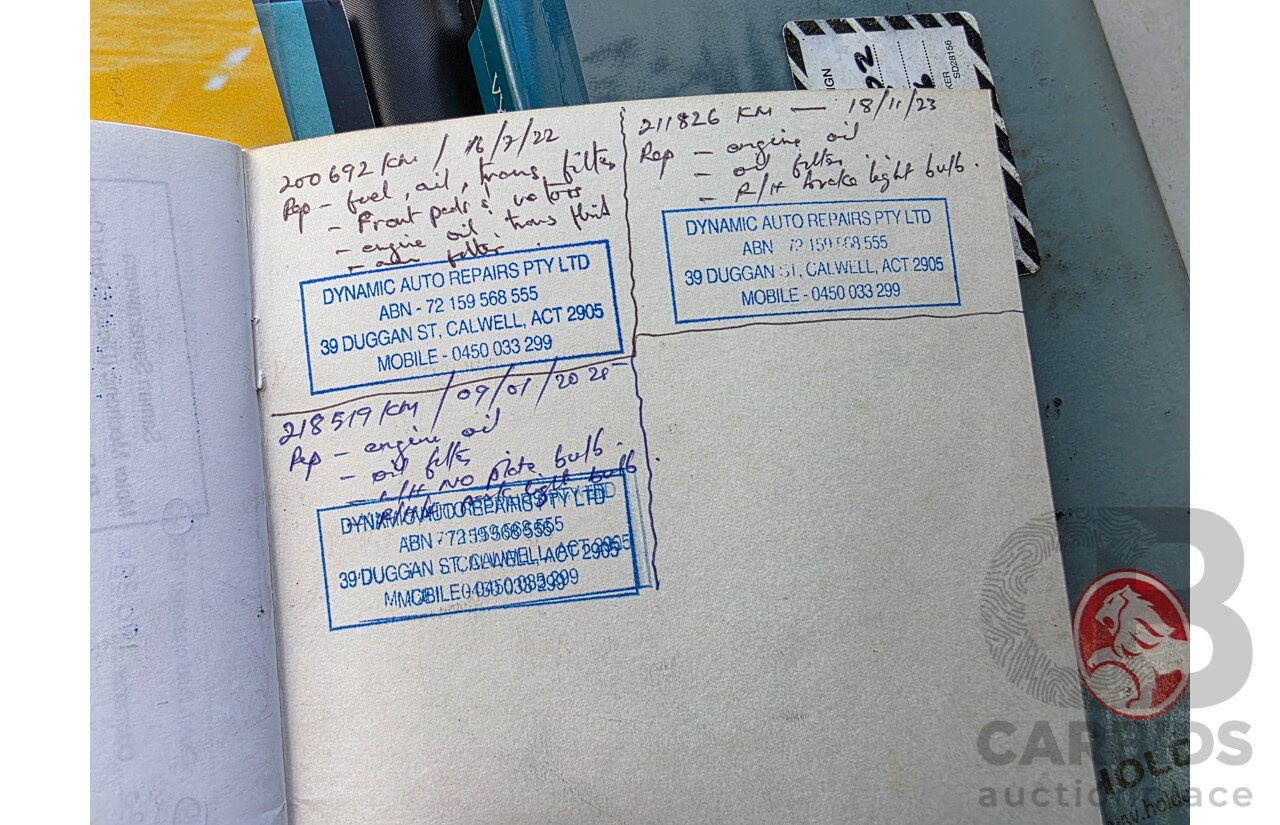 200692 KM / 16/7/22
Rep - fuel, oil, trans, filter
- Front pads & rotors
- engine oil, trans fluid
- filter
DYNAMIC AUTO REPAIRS PTY LTD
ABN - 72 159 568 555
39 DUGGAN ST, CALWELL, ACT 2905
MOBILE - 0450 033 299
211826 KM — 18/11/23
Rep - engine oil
- oil filter
- R/H brake light bulb.
DYNAMIC AUTO REPAIRS PTY LTD
ABN - 72 159 568 555
39 DUGGAN ST, CALWELL, ACT 2905
MOBILE - 0450 033 299
218519 KM / 09/01/2025
Rep - engine oil
- oil filter
- R/H NO plate bulb.
park light bulb.
DYNAMIC AUTO REPAIRS PTY LTD
ABN - 72 159 568 555
39 DUGGAN ST, CALWELL, ACT 2905
MOBILE - 0450 033 299
SD28156
CB
CARBIDS
auction place
HOLD
www.holde